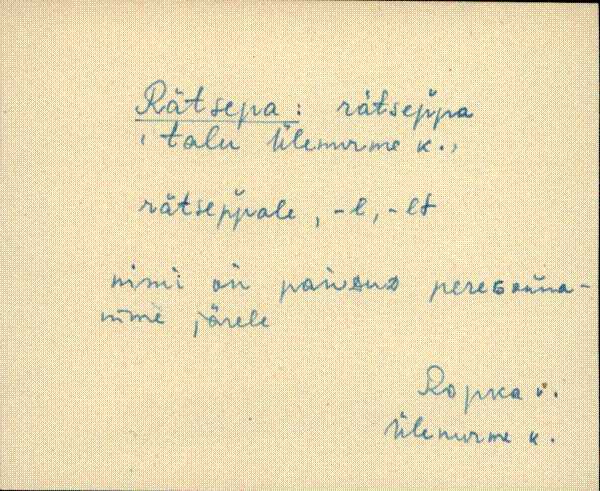 Rätsepa : rätsep̆p̆a
, talu Ülenurme k.,
rätsep̆p̆ale, -l, -lt
nimi on
nime järele
Ropka v.
Ülenurme k.